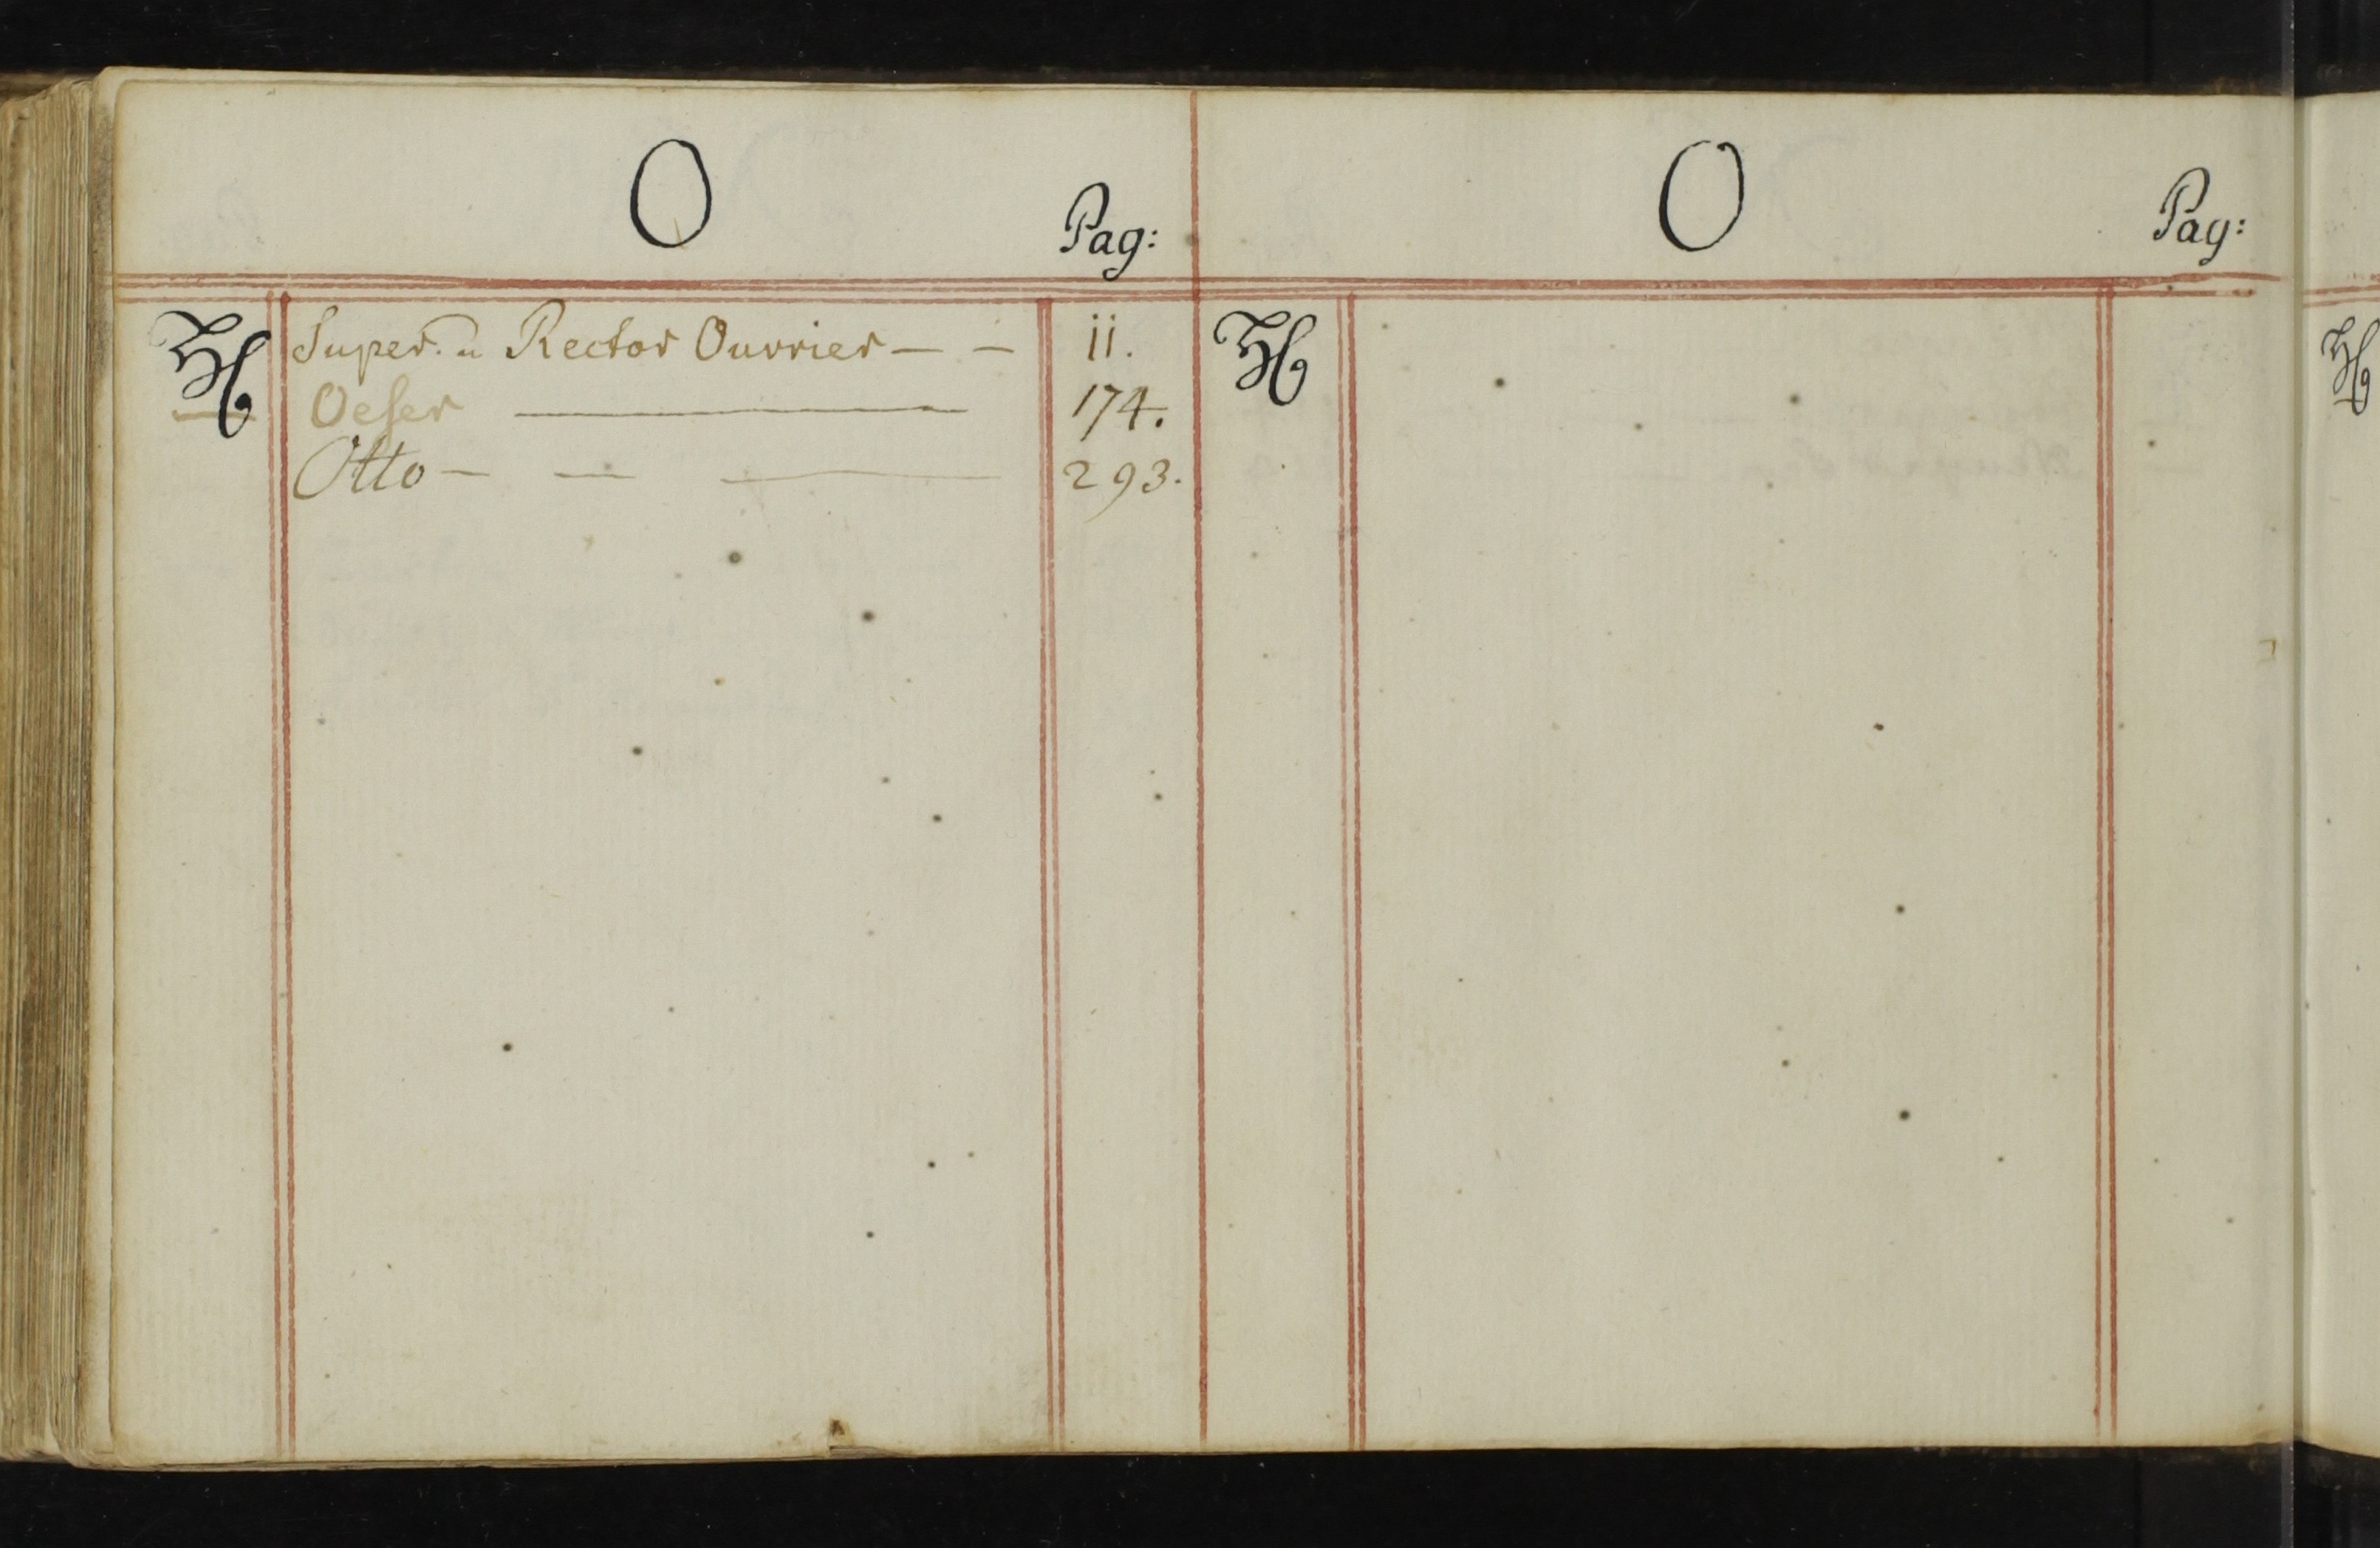 O
Pag:
Super. u Rector Ouvrier — — ii.
Oeser — 174.
Otto — — — 293.
O
Pag: